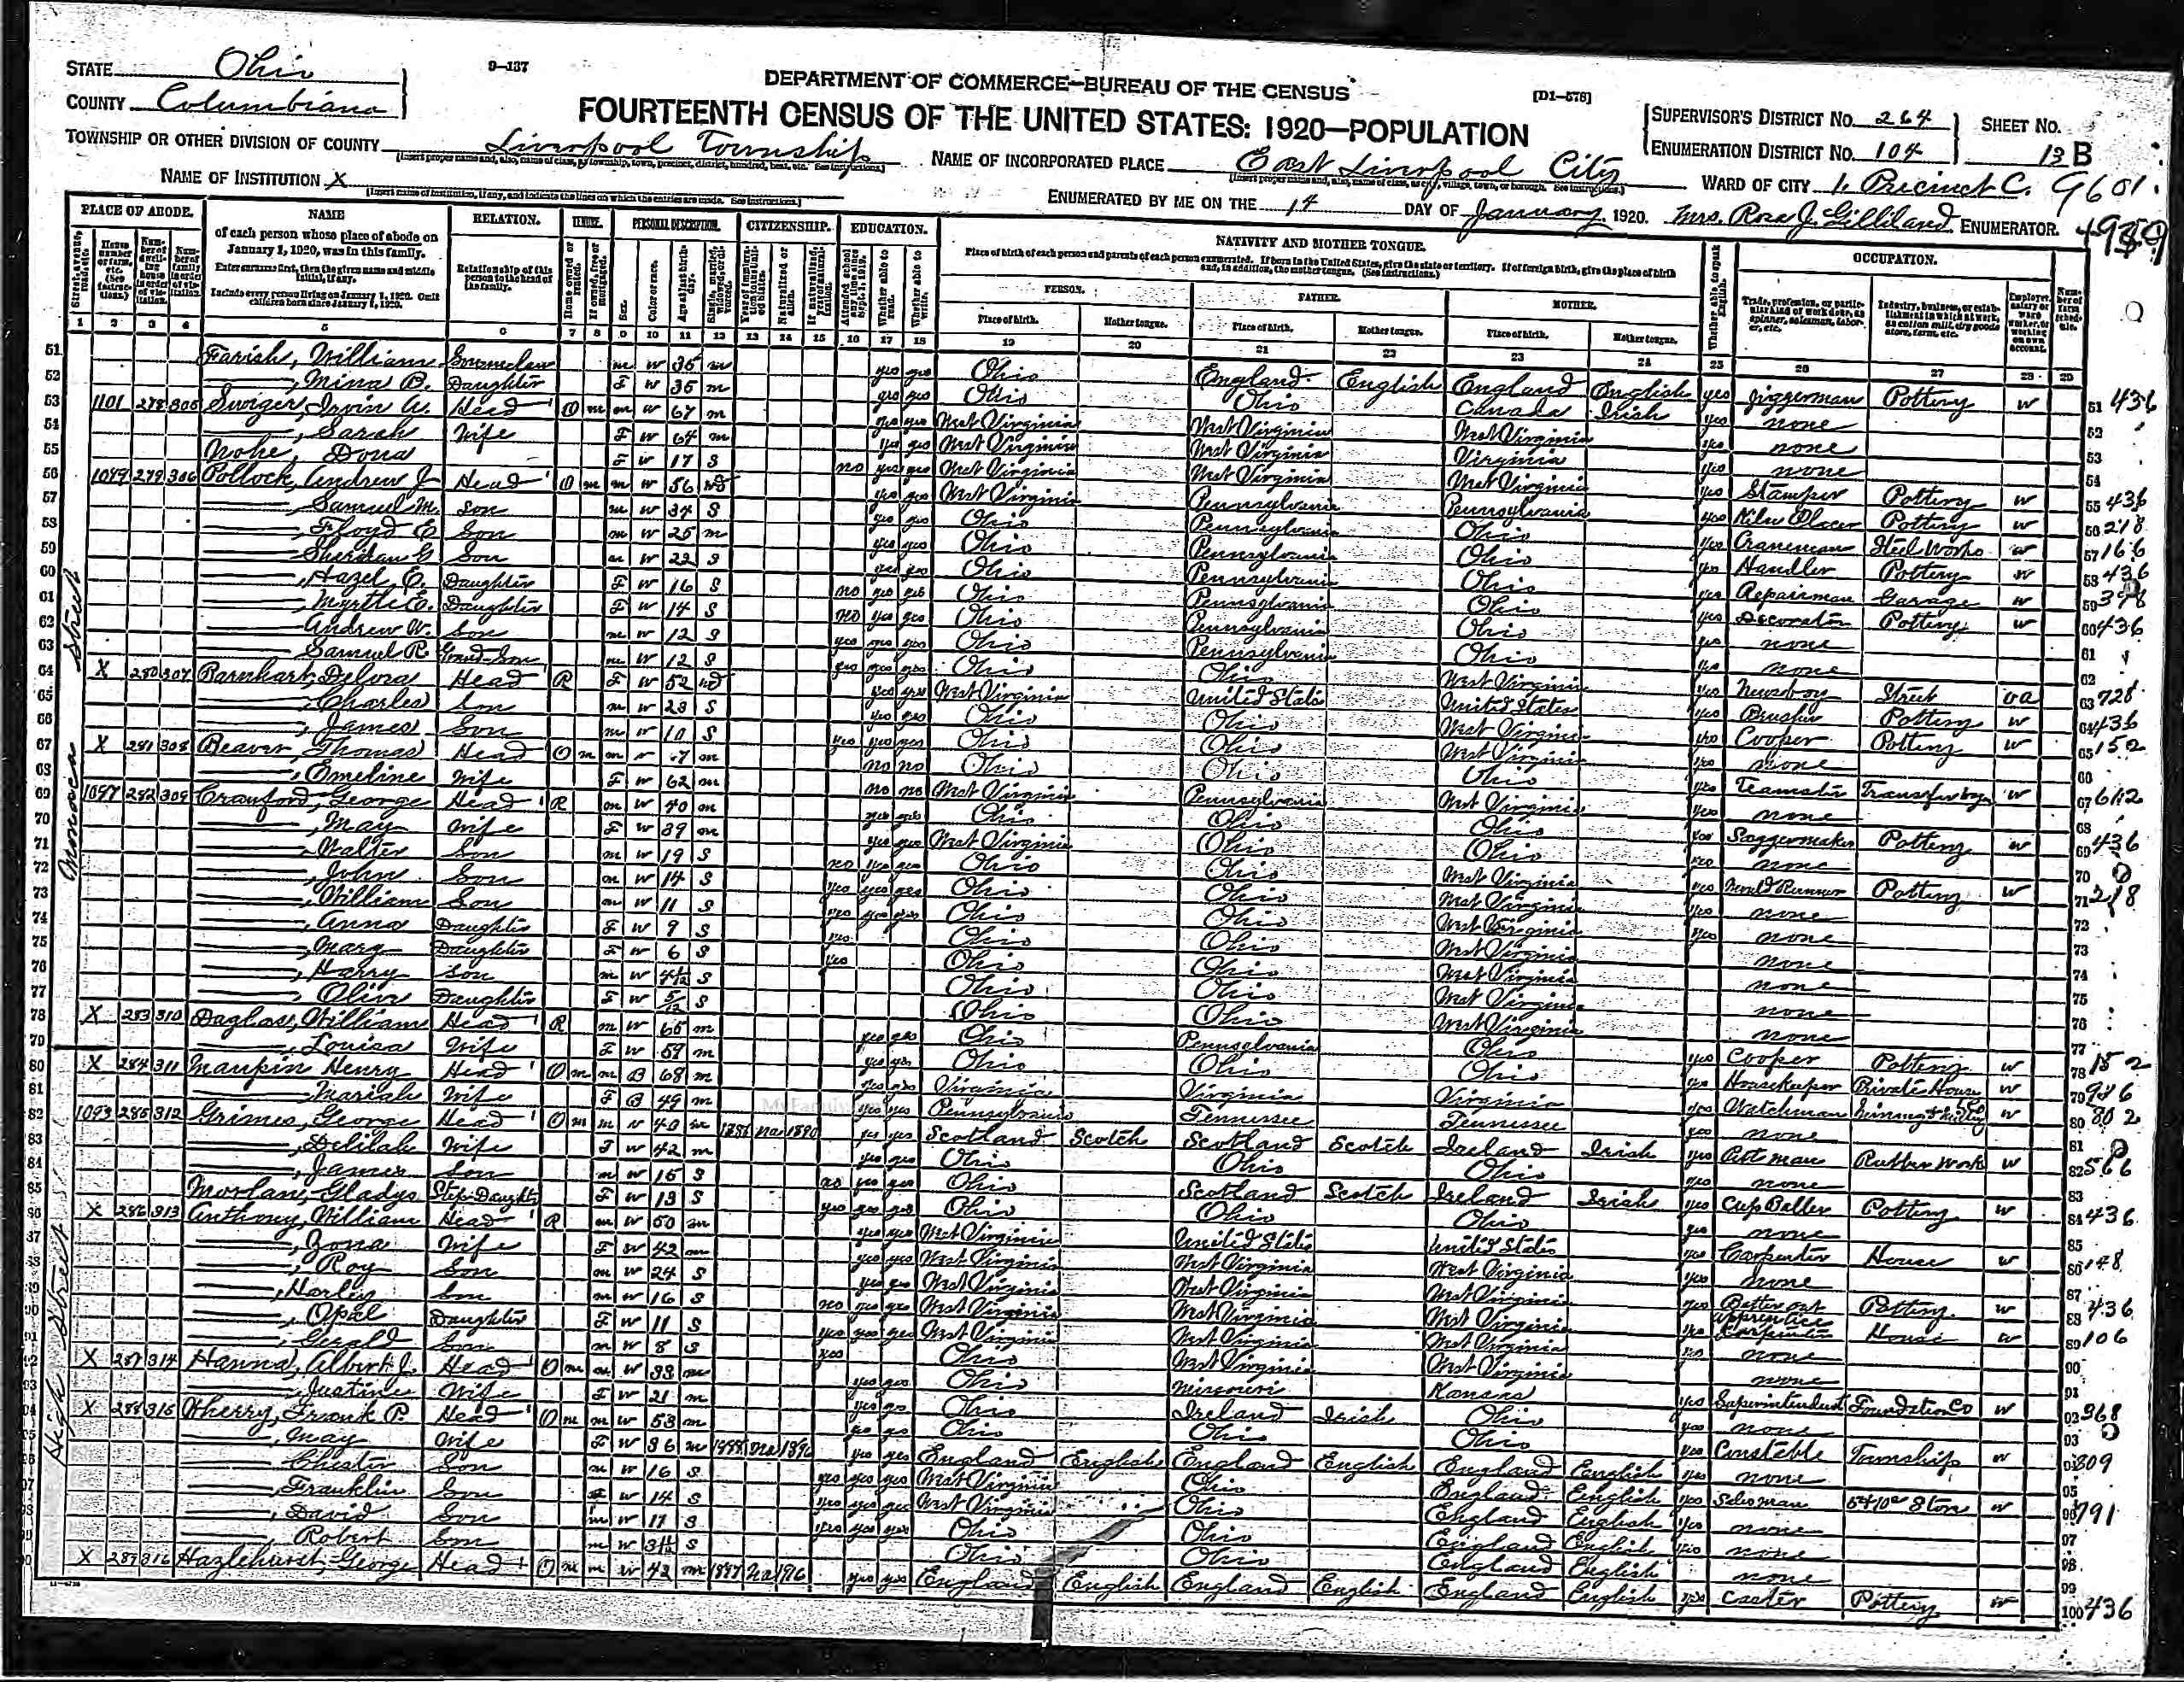 STATE Ohio
9-137
DEPARTMENT OF COMMERCE—BUREAU OF THE CENSUS
[D1-578]
COUNTY Columbiana
FOURTEENTH CENSUS OF THE UNITED STATES: 1920—POPULATION
SUPERVISOR'S DISTRICT No. 264 SHEET No.
ENUMERATION DISTRICT No. 104 13 B
TOWNSHIP OR OTHER DIVISION OF COUNTY Liverpool Township
NAME OF INCORPORATED PLACE East Liverpool City
WARD OF CITY 1, Precinct C. 9601
NAME OF INSTITUTION X
ENUMERATED BY ME ON THE 14 DAY OF January, 1920. Mrs. Rose J. Gilliland ENUMERATOR.
PLACE OF ABODE. NAME RELATION. TENURE. PERSONAL DESCRIPTION. CITIZENSHIP. EDUCATION. NATIVITY AND MOTHER TONGUE. OCCUPATION.
of each person whose place of abode on January 1, 1920, was in this family.
Enter surname first, then the given name and middle initial, if any.
Include every person living on January 1, 1920. Omit children born since January 1, 1920.
Relationship of this person to the head of the family.
PERSON. FATHER. MOTHER.
Place of birth. Mother tongue. Place of birth. Mother tongue. Place of birth. Mother tongue.
1 2 3 4 5 6 7 8 9 10 11 12 13 14 15 16 17 18 19 20 21 22 23 24 25 26 27 28 29
51 Farish, William Son-in-law m w 35 m yes yes Ohio England English England English yes Jiggerman Pottery w 436
52 —, Mina B. Daughter F w 35 m yes yes Ohio Ohio Canada Irish yes none
53 1101 278 305 Swiger, Irvin A. Head O m m w 67 m yes yes West Virginia West Virginia West Virginia yes none
54 —, Sarah Wife F w 64 m yes yes West Virginia West Virginia Virginia yes none
55 Nohe, Dona F w 17 S no yes yes West Virginia West Virginia West Virginia yes Stamper Pottery w 436
56 1099 279 306 Pollock, Andrew J Head O m m w 56 wd yes yes West Virginia Pennsylvania Pennsylvania yes Kiln Placer Pottery w 218
57 —, Samuel M. Son m w 34 S yes yes Ohio Pennsylvania Ohio yes Craneman Steel Works w 166
58 —, Floyd E Son m w 25 m yes yes Ohio Pennsylvania Ohio yes Handler Pottery w 436
59 —, Sheridan G Son m w 22 S yes yes Ohio Pennsylvania Ohio yes Repairman Garage w
60 —, Hazel E. Daughter F w 16 S no yes yes Ohio Pennsylvania Ohio yes Decorator Pottery w 436
61 —, Myrtle E. Daughter F w 14 S no yes yes Ohio Pennsylvania Ohio yes none
62 Andrew W. Son m w 12 S yes yes yes Ohio Pennsylvania Ohio yes none
63 Samuel R. Grand-Son m w 12 S yes yes yes Ohio Ohio West Virginia yes Newsboy Street oa 728
64 X 280 307 Barnhart, Delora Head R F w 52 wd yes yes West Virginia United States United States yes Brusher Pottery w 436
65 —, Charles Son m w 23 S yes yes Ohio Ohio West Virginia yes Cooper Pottery w 152
66 —, James Son m w 10 S yes yes yes Ohio Ohio West Virginia yes none
67 X 281 308 Beaver, Thomas Head O m m 67 m no no Ohio Ohio Ohio yes Teamster w 612
68 —, Emeline Wife F w 62 m no no West Virginia Pennsylvania West Virginia yes none
69 1097 282 309 Crawford, George Head R m w 40 m yes yes Ohio Ohio Ohio yes Saggermaker Pottery w 436
70 —, May Wife F w 39 m yes yes West Virginia Ohio Ohio yes none
71 —, Walter Son m w 19 S no yes yes Ohio Ohio West Virginia yes Mould Runner Pottery w 218
72 —, John Son m w 14 S yes yes yes Ohio Ohio West Virginia yes none
73 —, William Son m w 11 S yes yes yes Ohio Ohio West Virginia yes none
74 —, Anna Daughter F w 9 S yes Ohio Ohio West Virginia none
75 —, Mary Daughter F w 6 S yes Ohio Ohio West Virginia none
76 —, Harry Son m w S Ohio Ohio West Virginia none
77 —, Olive Daughter F w 5/12 S Ohio Ohio West Virginia none
78 X 283 310 Daglas, William Head R m w 65 m yes yes Ohio Pennsylvania Ohio yes Cooper Pottery w 152
79 —, Louisa Wife F w 59 m yes yes Ohio Ohio Ohio yes Housekeeper Private House w
80 X 284 311 Maupin Henry Head O m m B 68 m yes yes Virginia Virginia Virginia yes Watchman w 802
81 —, Mariah Wife F B 49 m yes yes Pennsylvania Tennessee Tennessee yes none
82 1093 285 312 Grimes, George Head O m m w 40 m 1886 na 1890 yes yes Scotland Scotch Scotland Scotch Ireland Irish yes Pitman Rubber Work w 566
83 —, Delilah Wife F w 42 m yes yes Ohio Ohio Ohio yes none
84 —, James Son m w 15 S no yes yes Ohio Scotland Scotch Ireland Irish yes Cup Baller Pottery w 436
85 Morlan, Gladys Step-Daughter F w 13 S yes yes yes Ohio Ohio Ohio yes none
86 X 286 313 Anthony, William Head R m w 50 m yes yes West Virginia United States United States yes Carpenter House w 148
87 —, Zona Wife F w 42 m yes yes West Virginia West Virginia West Virginia yes none
88 —, Roy Son m w 24 S yes yes West Virginia West Virginia West Virginia yes Batter out Pottery w 436
89 —, Harley Son m w 16 S no yes yes West Virginia West Virginia West Virginia yes Apprentice Carpenter House w 106
90 —, Opal Daughter F w 11 S yes yes yes West Virginia West Virginia West Virginia yes none
91 —, Gerald Son m w 8 S yes Ohio West Virginia West Virginia none
92 X 287 314 Hanna, Albert J. Head O m m w 33 m yes yes Ohio Missouri Kansas yes Superintendent Foundation Co w 968
93 —, Justine Wife F w 21 m yes yes Ohio Ireland Irish Ohio yes none
94 X 288 315 Wherry, Frank P. Head O m m w 53 m yes yes Ohio Ohio Ohio yes Constable Township w 809
95 —, May Wife F w 36 m 1888 na 1896 yes yes England English England English England English yes none
96 —, Chester Son m w 16 S yes yes yes West Virginia Ohio England English yes Salesman 5&10¢ Store w 791
97 —, Franklin Son w 14 S yes yes yes West Virginia Ohio England English yes none
98 —, David Son m w 11 S yes yes yes Ohio Ohio England English yes none
99 —, Robert Son m w S Ohio Ohio England English none
100 X 289 316 Hazlehurst, George Head O m m w 42 m 1887 na yes yes England English England English England English yes Caster Pottery w 436
Monaca Street
High Street